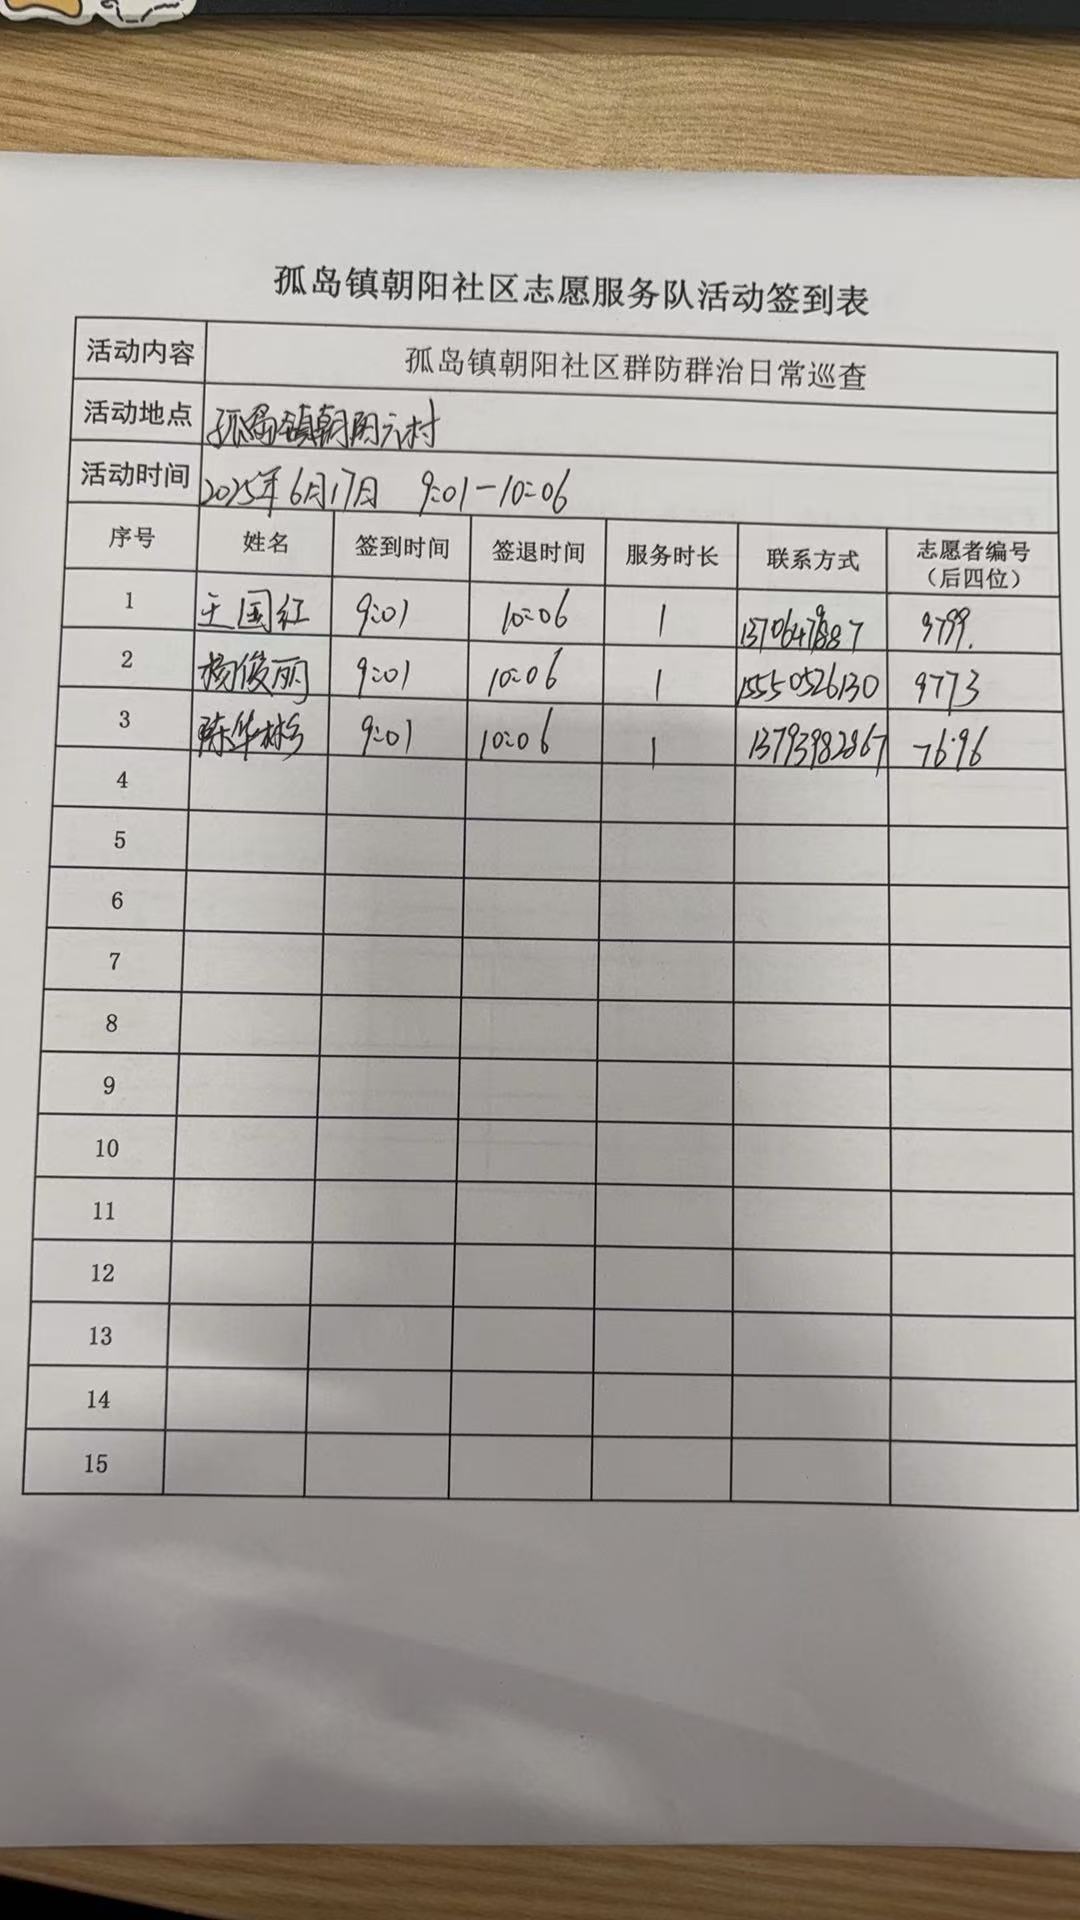 孤岛镇朝阳社区志愿服务队活动签到表
活动内容 孤岛镇朝阳社区群防群治日常巡查
活动地点 孤岛镇朝阳六村
活动时间 2025年6月17日 9:01-10:06
序号 姓名 签到时间 签退时间 服务时长 联系方式 志愿者编号（后四位）
1 王国红 9:01 10:06 1
2 杨俊丽 9:01 10:06 1 15550526130 9773
3 陈华彬 9:01 10:06 1 13793982867 7696
4
5
6
7
8
9
10
11
12
13
14
15